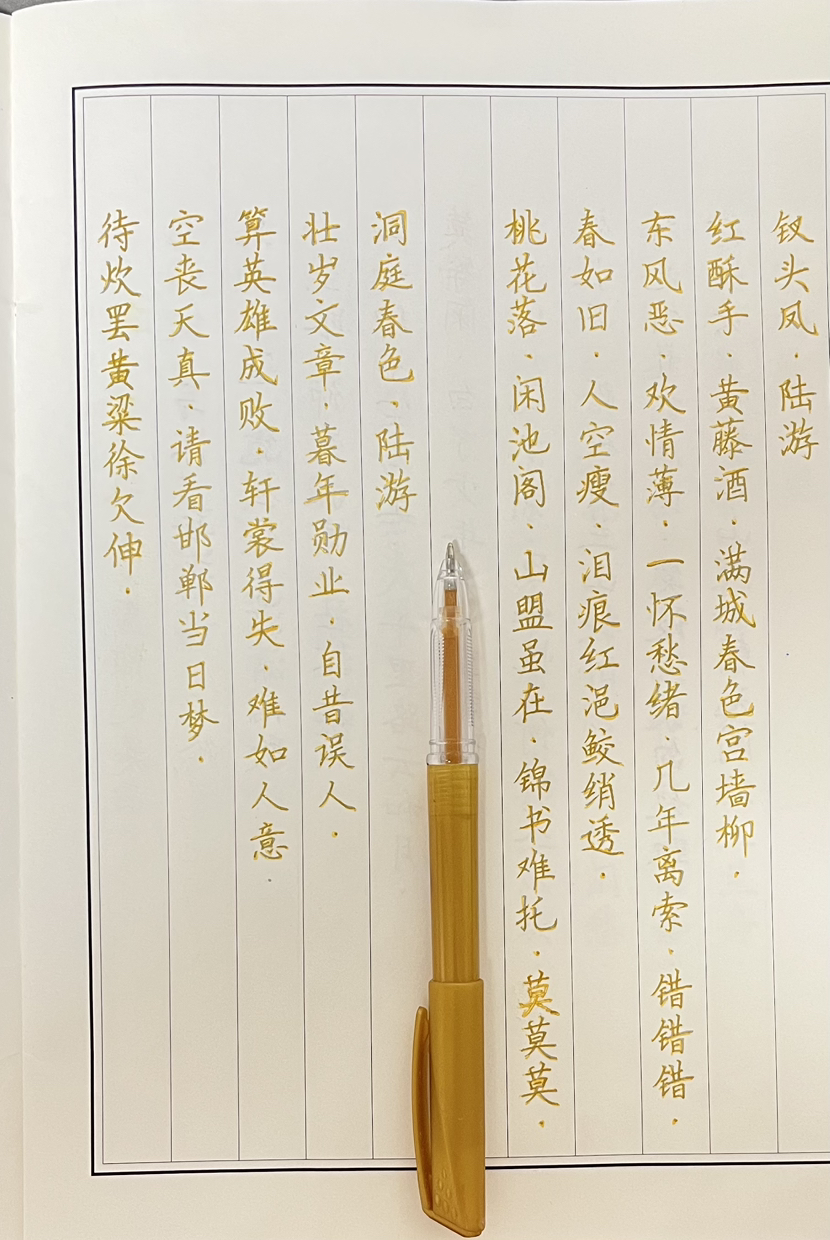 钗头凤·陆游
红酥手·黄藤酒·满城春色宫墙柳·
东风恶·欢情薄·一怀愁绪·几年离索·错错错·
春如旧·人空瘦·泪痕红浥鲛绡透·
桃花落·闲池阁·山盟虽在·锦书难托·莫莫莫·
洞庭春色·陆游
壮岁文章·暮年勋业·自昔误人·
算英雄成败·轩裳得失·难如人意·
空丧天真·请看邯郸当日梦·
待炊罢黄粱徐欠伸·